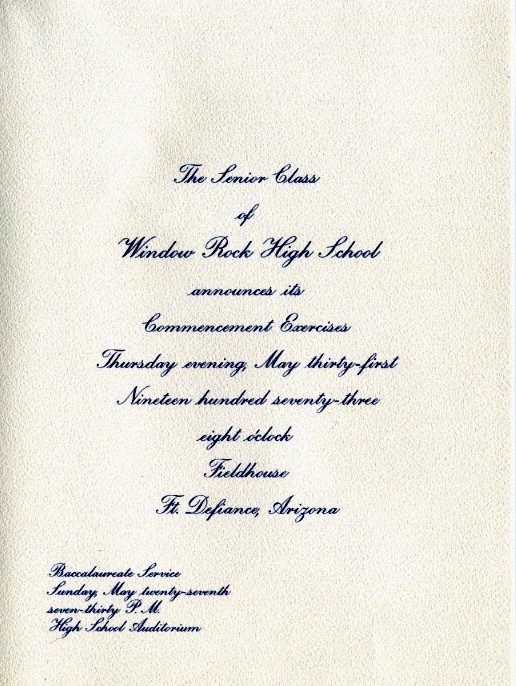 The Senior Class
of
Window Rock High School
announces its
Commencement Exercises
Thursday evening, May thirty-first
Nineteen hundred seventy-three
eight o'clock
Fieldhouse
Ft. Defiance, Arizona
Baccalaureate Service
Sunday, May twenty-seventh
seven-thirty P. M.
High School Auditorium